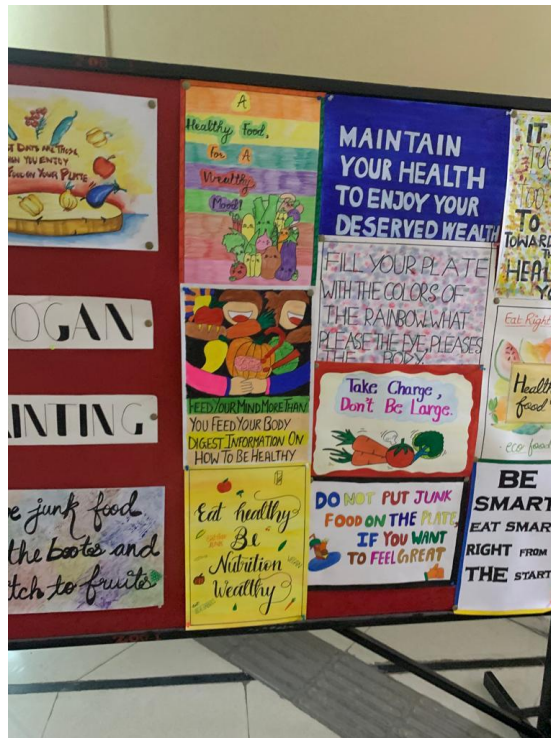 T DAYS ARE THOSE
N YOU ENJOY
FOOD ON YOUR PLATE
OGAN
INTING
e junk food
the boots and
tch to fruits
A
Healthy Food,
For A
Wealthy
Mood!
FEED YOUR MIND MORE THAN
YOU FEED YOUR BODY
DIGEST INFORMATION ON
HOW TO BE HEALTHY
Eat healthy
Be
Nutrition
Wealthy
MAINTAIN
YOUR HEALTH
TO ENJOY YOUR
DESERVED WEALTH
FILL YOUR PLATE
WITH THE COLORS OF
THE RAINBOW. WHAT
PLEASE THE EYE, PLEASES
THE BODY.
Take Charge,
Don't Be Large.
DO NOT PUT JUNK
FOOD ON THE PLATE,
IF YOU WANT
TO FEEL GREAT
IT
TO
TOWARD
HEAL
Eat Right
Health
food
eco food
BE
SMART
EAT SMAR
RIGHT FROM
THE START